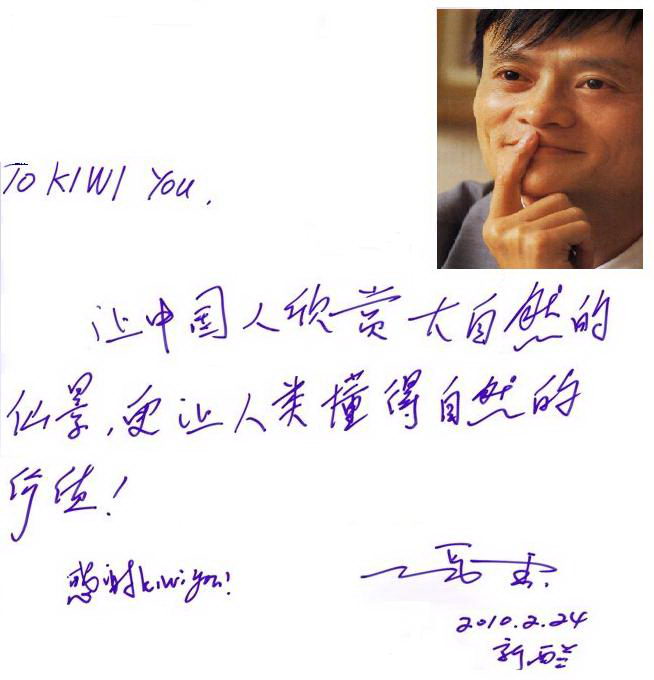 To KIWI You,
让中国人欣赏大自然的
仙景,更让人类懂得自然的
价值!
感谢kiwiyou!
2010.2.24
新西兰